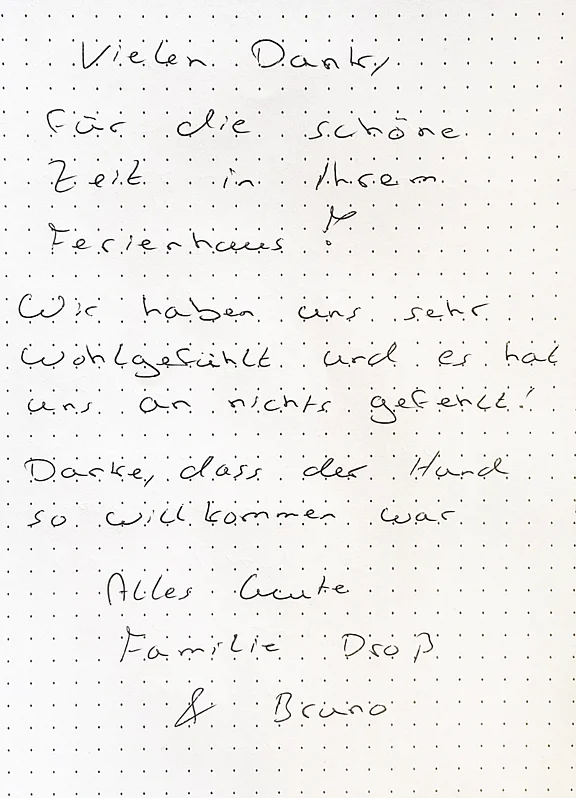 Vielen Dank,
für die schöne
Zeit in Ihrem
Ferienhaus!
Wir haben uns sehr
wohlgefühlt und es hat
uns an nichts gefehlt!
Danke, dass der Hund
so willkommen war
Alles Gute
Familie Droß
& Bruno